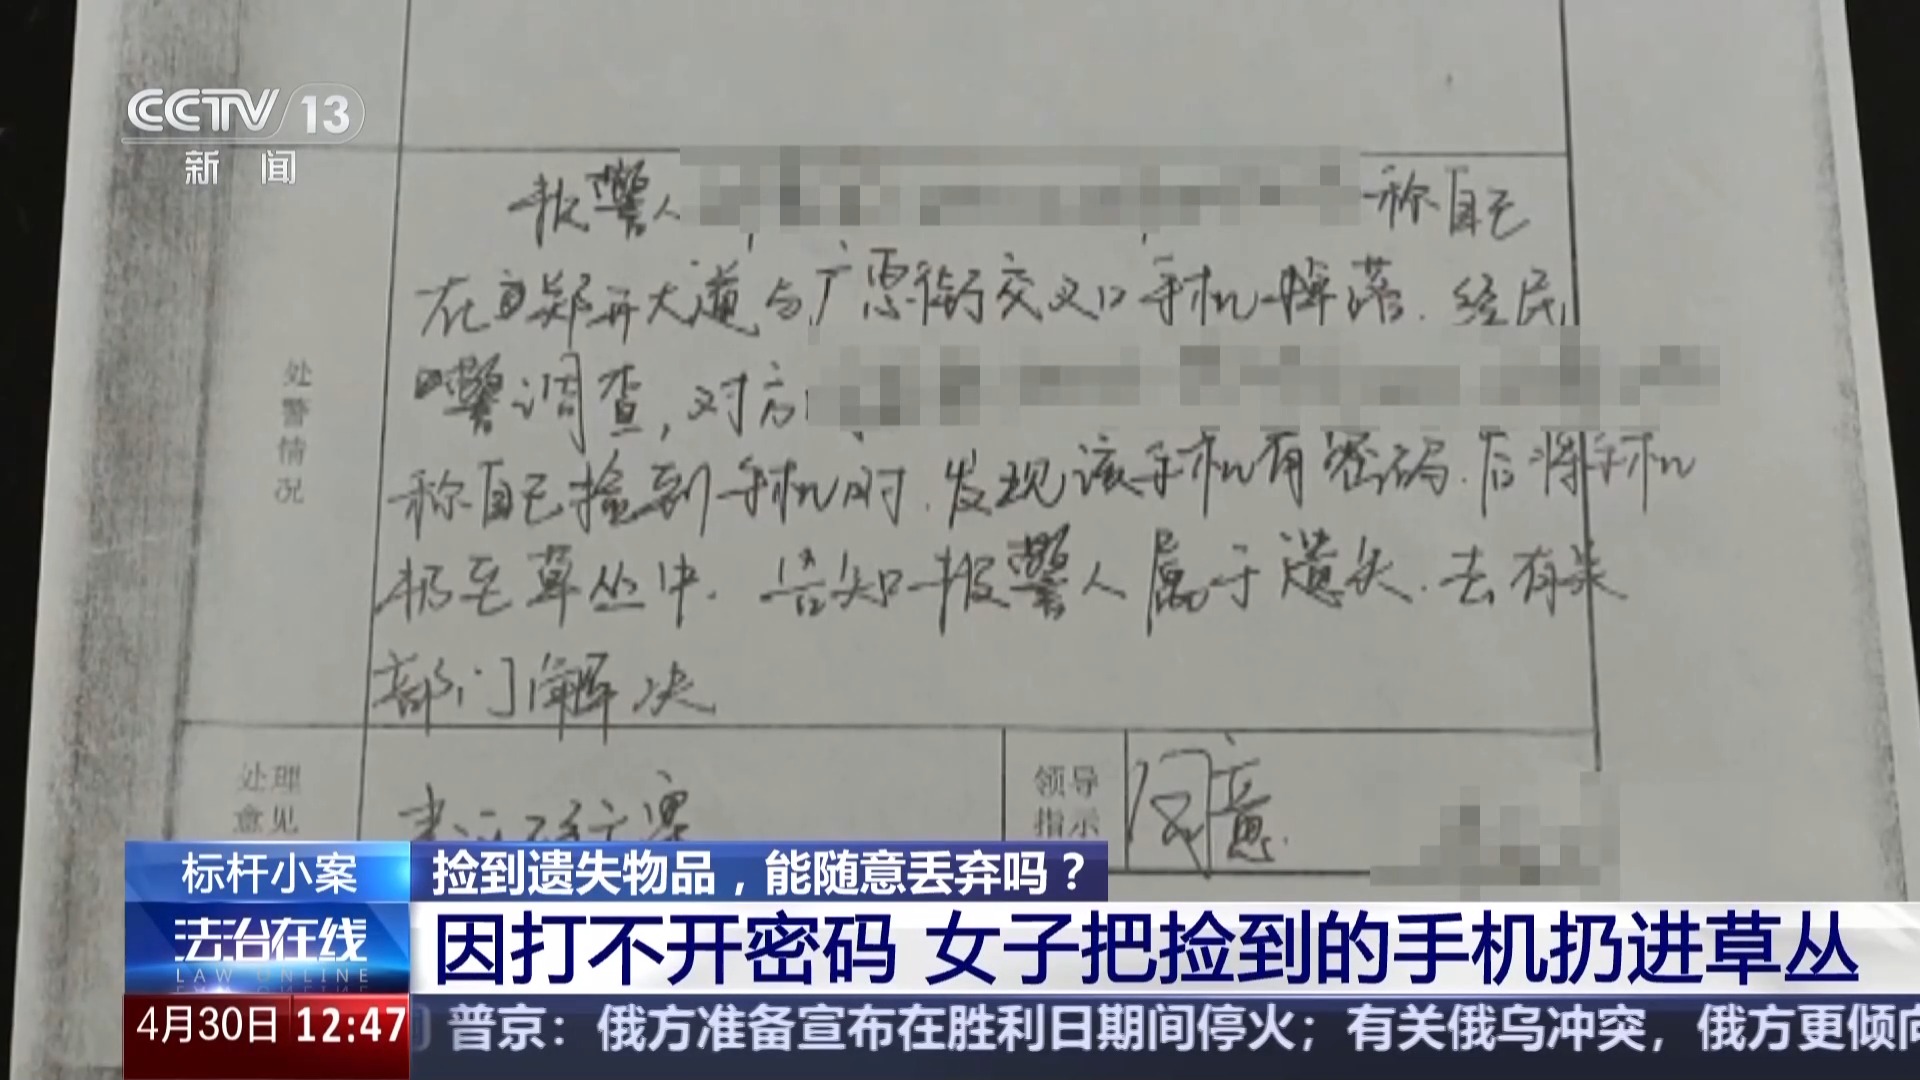 CCTV 13
新闻
报警人 称自己
在郑开大道与广惠街交叉口手机掉落. 经民
警调查, 对方
处警情况
称自己捡到手机时, 发现该手机有密码. 后将手机
扔至草丛中. 告知报警人属于遗失. 去有关
部门解决
处理意见
领导指示
同意.
标杆小案
捡到遗失物品，能随意丢弃吗？
法治在线
LAW ONLINE
因打不开密码 女子把捡到的手机扔进草丛
4月30日 12:47
普京：俄方准备宣布在胜利日期间停火；有关俄乌冲突，俄方更倾向